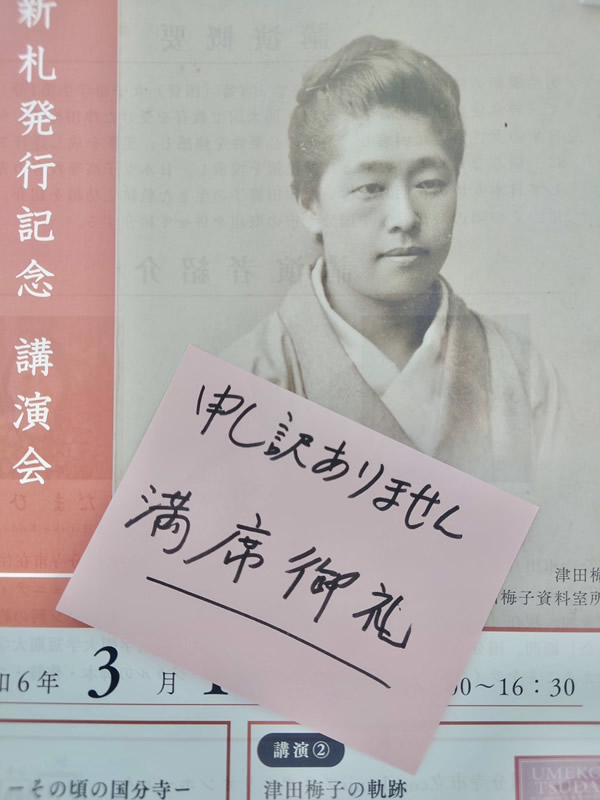 新札発行記念 講演会
申し訳ありません
満席御礼
津田梅
梅子資料室所
和6年 3月
00～16：30
ーその頃の国分寺ー
講演②
津田梅子の軌跡
UMEKO
TSUDA